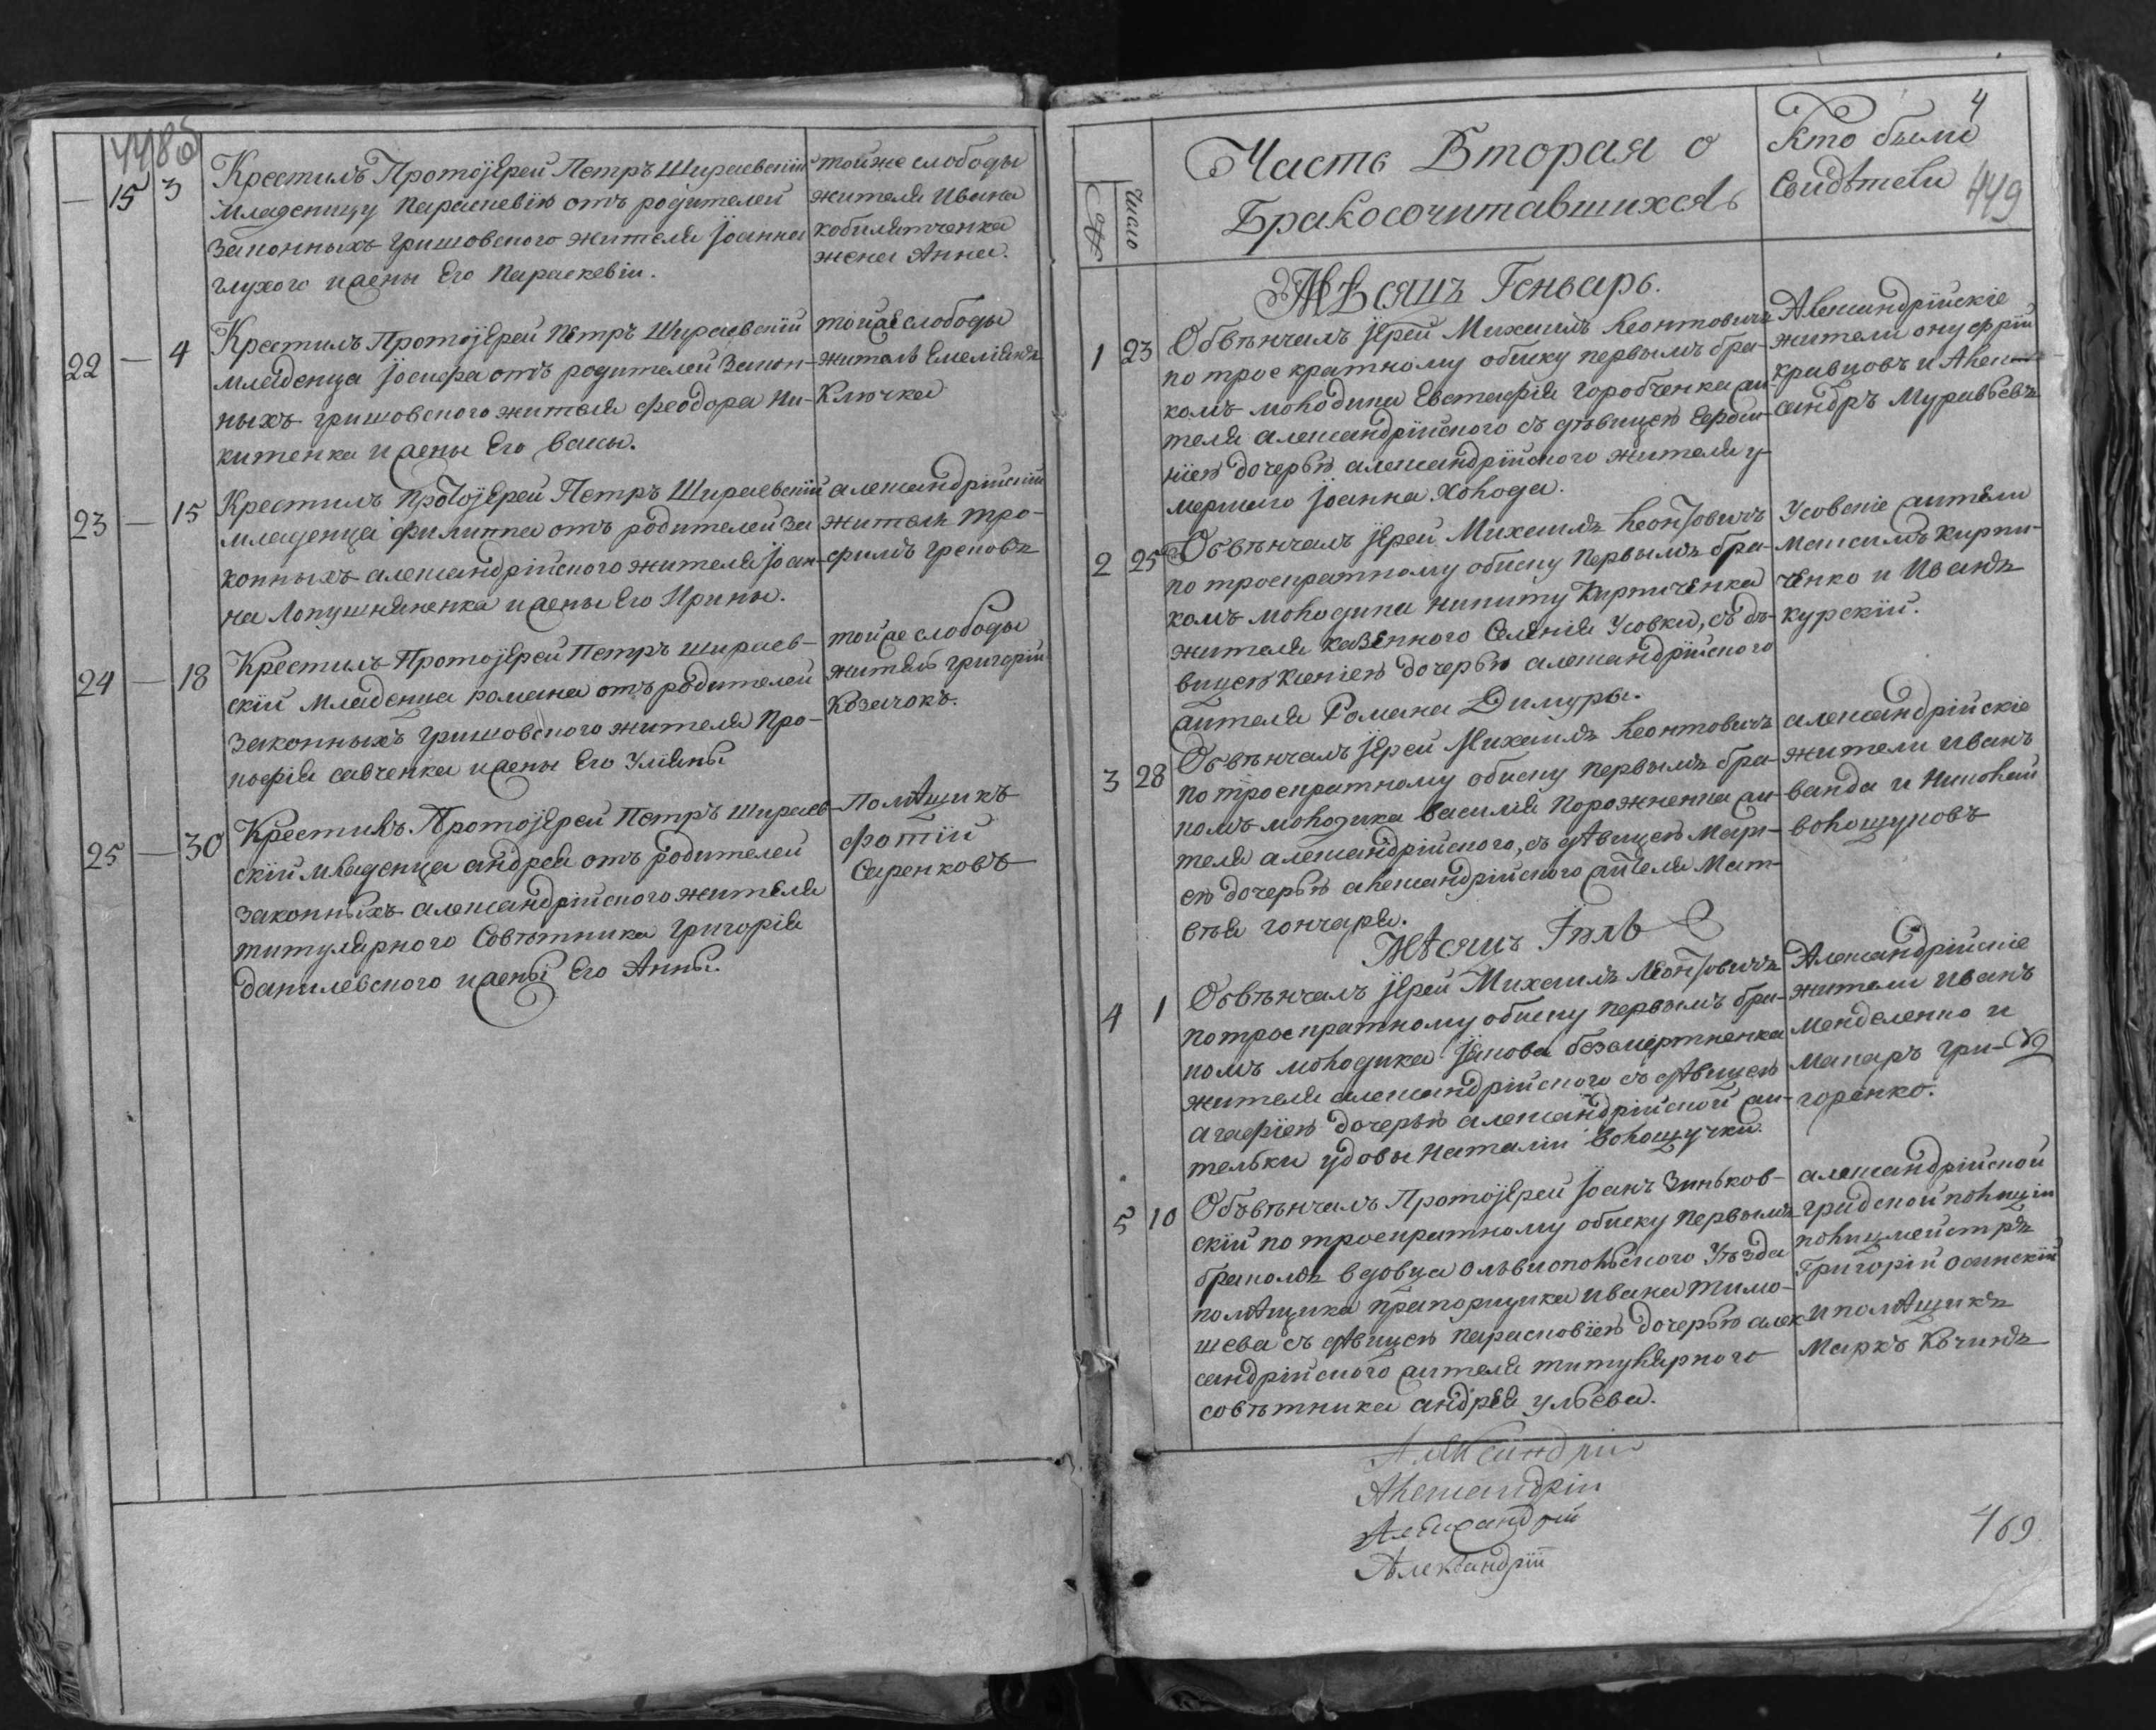 448об
— 15 3 Крестилъ Протоjерей Петръ Шираевскій
младеницу Параскевію отъ родителей
законныхъ гришовского жителя Jоанна
глухого и жены Его Параскевіи.
тойже слободы
жителя Ивана
кобилятченка
жена Анна.
22 — 4 Крестилъ Протоjерей Петръ Шираевскій
младенца Jосифа отъ родителей закон-
ныхъ гришовского жителя феодора Ни-
китенка и жены Его Васы.
тойже слободы
житель Емеліянъ
Ключка
23 — 15 Крестилъ Протоjерей Петръ Шираевскій
младенца филиппа отъ родителей за
конныхъ александрійского жителя Jоан-
на Лопушняненка и жены Его Ирины.
александрійскій
житель тро-
филъ грековъ
24 — 18 Крестилъ Протоjерей Петръ шираев-
скій младенца романа отъ родителей
законныхъ гришовского жителя Про-
кофія савченка и жены Его Уліяны
тойже слободы
житель григорій
Козачокъ.
25 — 30 Крестилъ Протоjерей Петръ Шираев-
скій младенца андрея отъ родителей
законныхъ александрійского жителя
титулярного Совѣтника григорія
данилевского и жены Его Анны.
Помѣщикъ
фотій
Саренковъ
4
449
Число
Часть Вторая о
Бракосочитавшихся
Кто были
Свидѣтели
Мѣсяцъ Геньварь.
1 23 Обвѣнчалъ jерей Михаилъ Леонтовичъ
по троекратному обиску первымъ бра-
комъ молодика Евстафія горобченка жи-
теля александрійского съ дѣвицею Евфои-
ніею дочерью александрійского жителя у-
мершого Jоанна Холода.
Александрійскіе
жители онуфрій
кравцовъ и Алек-
сандръ Муравьевъ
2 25 Обвѣнчалъ jерей Михаилъ Леонтовичъ
по троекратному обиску Первымъ бра-
комъ молодика никиту Кирпиченка
жителя казенного Селенія Усовки, съ дѣ-
вицею ксеніею дочерью александрійского
жителя Романа Димуры.
Усовскіе жители
Максимъ кирпи-
ченко и Иванъ
курскій.
3 28 Обвѣнчалъ jерей Михаилъ Леонтовичъ
по троекратному обиску первымъ бра-
комъ молодика василія порожненка жи-
теля александрійского, съ дѣвицею Мар-
ею дочерью александрійского жителя Мат-
вѣя гончаря.
александрійскіе
жители иванъ
ванда и николай
волощуковъ
Мѣсяцъ Iюль
4 1 Обвѣнчалъ jерей Михаилъ Леонтовичъ
по троекратному обиску первымъ бра-
комъ молодика jакова безсмертненка
жителя александрійского съ дѣвицею
агафіею дочерью александрійской жи-
тельки удовы наталіи Волощучки.
Александрійскіе
жители иванъ
Менделенко и
Макаръ гри-
горенко.
5 10 Обвѣнчалъ Протоjерей Jоанъ Зиньков-
скій по троекратному обиску первымъ
бракомъ вдовца ольвиопольского Уѣзда
помѣщика прапорщика ивана тимо-
шева съ дѣвицею парасковіею дочерью алек
сандрійского жителя титулярного
совѣтника андрея ульева.
александрійской
градской полиціи
полицмейстръ
Григорій осинскій
и помѣщикъ
Маркъ Кочинъ
Александріи
Александріи
Александрій
Александріи
469